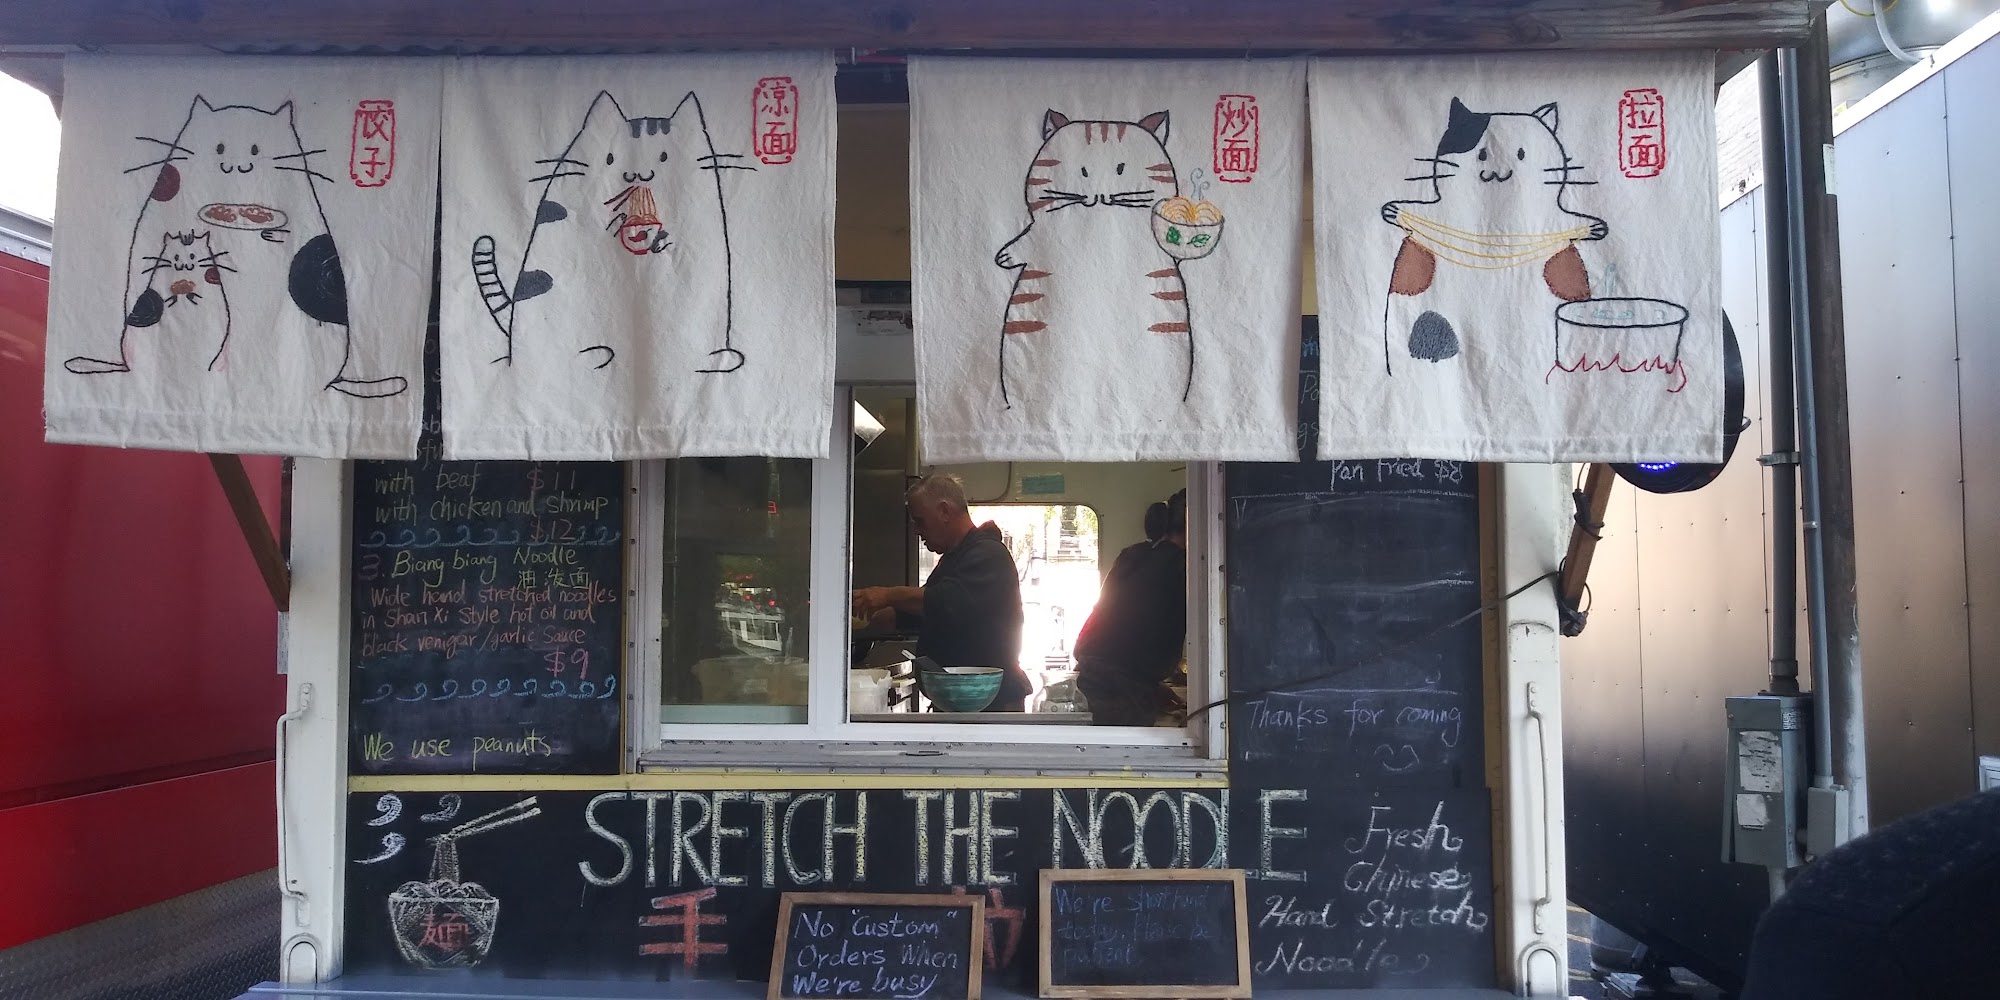 饺子
凉面
炒面
拉面
with beaf $11
with chicken and shrimp
$12
3. Biang biang Noodle
油泼面
Wide hand stretched noodles
in Shan Xi Style hot oil and
black venigar/garlic Sauce
$9
We use peanuts
Pan fried $8
Thanks for coming
STRETCH THE NOODLE
麺
手
No "Custom"
Orders When
We're busy
We're short hand
today. Please be
patient
Fresh
Chinese
Hand Stretch
Noodle